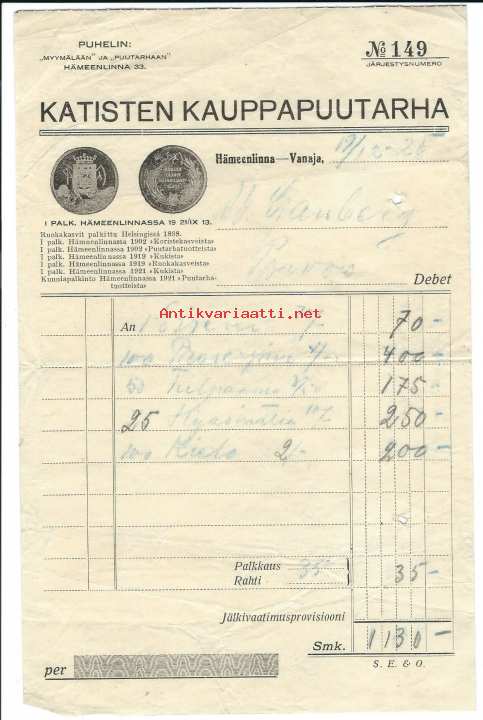 PUHELIN:
„MYYMÄLÄÄN” JA „PUUTARHAAN”
HÄMEENLINNA 33.
№ 149
JÄRJESTYSNUMERO
KATISTEN KAUPPAPUUTARHA
Hämeenlinna—Vanaja,
I PALK. HÄMEENLINNASSA 19 21/IX 13.
Ruokakasvit palkittu Helsingissä 1898.
I palk. Hämeenlinnassa 1902 »Koristekasveista»
I palk. Hämeenlinnassa 1902 »Puutarhatuotteista»
I palk. Hämeenlinnassa 1919 »Kukista»
I palk. Hämeenlinnassa 1919 »Ruokakasveista»
I palk. Hämeenlinnassa 1921 »Kukista»
Kunniapalkinto Hämeenlinnassa 1921 »Puutarha-
tuotteista»
Debet
Antikvariaatti.net
An 70-
100 400-
50 Tulpaania 175-
25 250-
100 Kielo 2/- 200-
Palkkaus
Rahti 35- 35-
Jälkivaatimusprovisiooni
Smk. 1130-
per
S. E. & O.